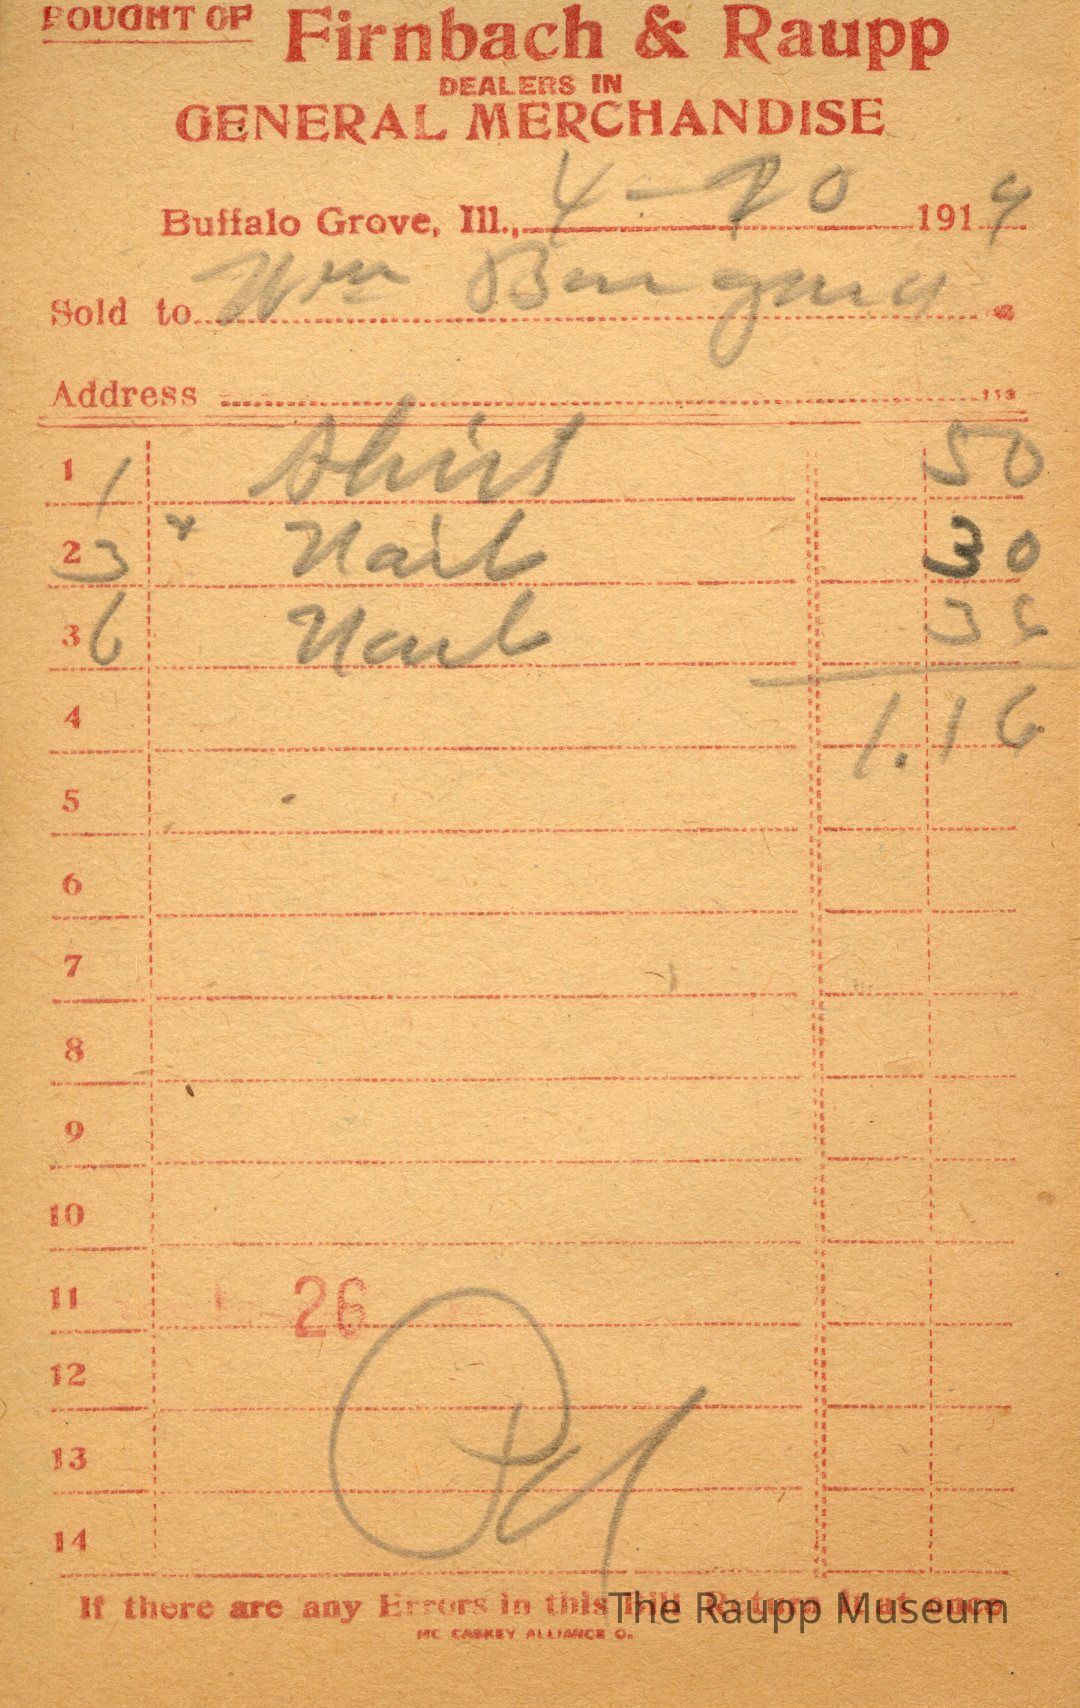 BOUGHT OF Firnbach & Raupp
DEALERS IN
GENERAL MERCHANDISE
Buffalo Grove, Ill., 4-20 1919
Sold to Wm
Address
113
1 1 Shirt 50
2 3 " Nails 30
3 6 Nails 36
4 1.16
5
6
7
8
9
10
11 26
12
13
14
Pd
If there are any Errors in this Bill Return it at once
The Raupp Museum
MC CASKEY ALLIANCE O.